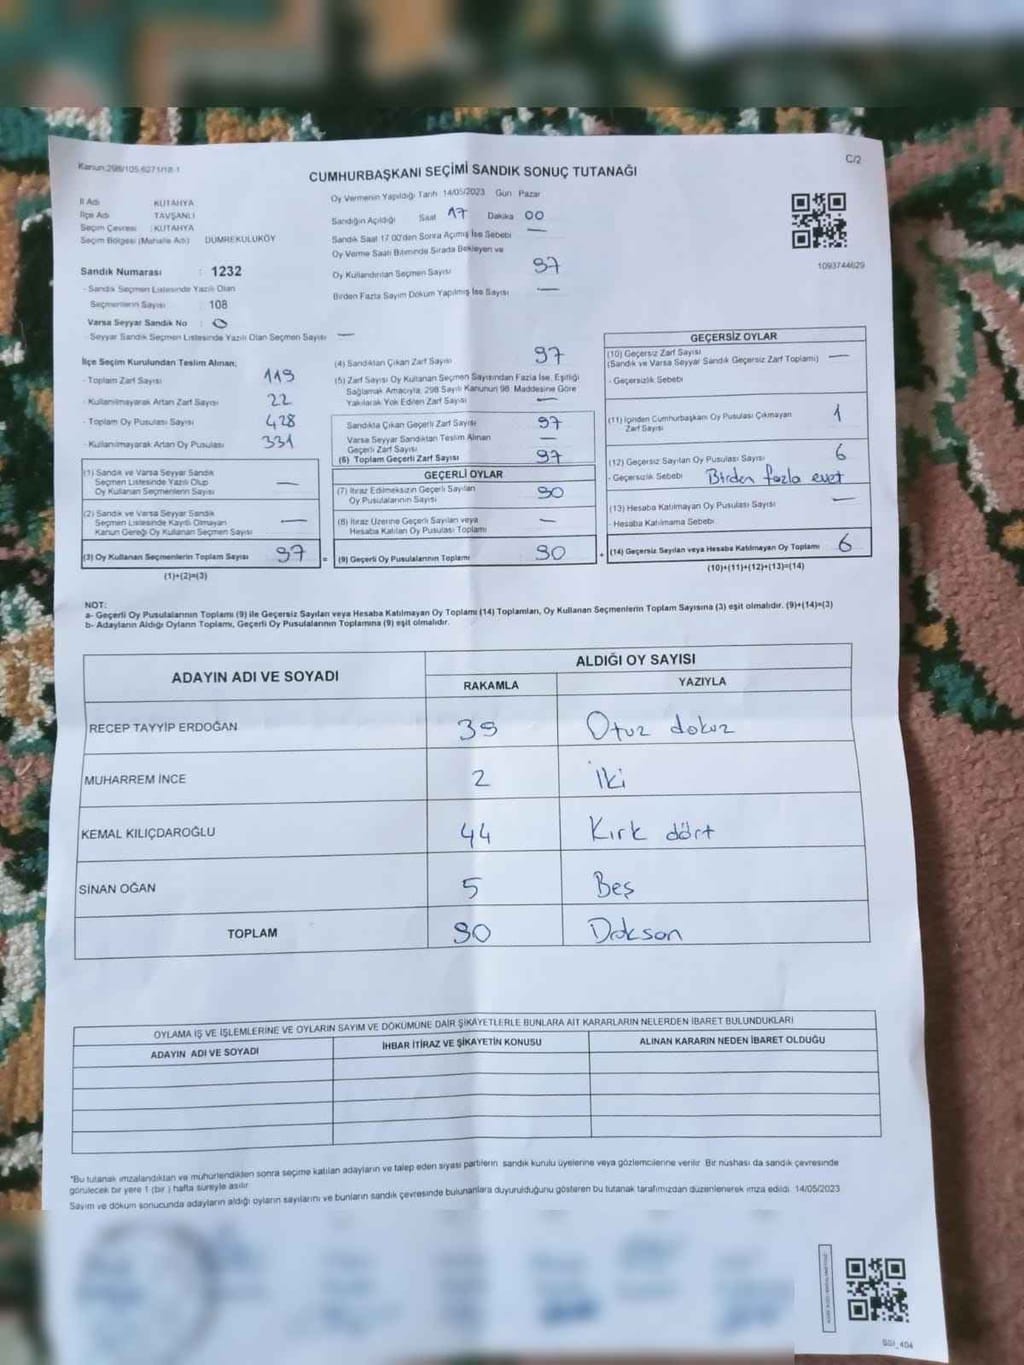 Kanun:298/105,6271/18-1
C/2
CUMHURBAŞKANI SEÇİMİ SANDIK SONUÇ TUTANAĞI
İl Adı KÜTAHYA
İlçe Adı TAVŞANLI
Seçim Çevresi : KÜTAHYA
Seçim Bölgesi (Mahalle Adı) DÜMREKULUKÖY
Sandık Numarası : 1232
- Sandık Seçmen Listesinde Yazılı Olan
Seçmenlerin Sayısı : 108
Varsa Seyyar Sandık No : 0
- Seyyar Sandık Seçmen Listesinde Yazılı Olan Seçmen Sayısı —
Oy Vermenin Yapıldığı Tarih 14/05/2023 Gün Pazar
Sandığın Açıldığı Saat 17 Dakika 00
Sandık Saat 17.00'den Sonra Açımış İse Sebebi —
Oy Verme Saati Bitiminde Sırada Bekleyen ve
Oy Kullandırılan Seçmen Sayısı 97
Birden Fazla Sayım Döküm Yapılmış İse Sayısı —
1093744629
İlçe Seçim Kurulundan Teslim Alınan;
- Toplam Zarf Sayısı 119
- Kullanılmayarak Artan Zarf Sayısı 22
- Toplam Oy Pusulası Sayısı 428
- Kullanılmayarak Artan Oy Pusulası 331
(1) Sandık ve Varsa Seyyar Sandık
Seçmen Listesinde Yazılı Olup
Oy Kullanan Seçmenlerin Sayısı —
(2) Sandık ve Varsa Seyyar Sandık
Seçmen Listesinde Kayıtlı Olmayan
Kanun Gereği Oy Kullanan Seçmen Sayısı —
(3) Oy Kullanan Seçmenlerin Toplam Sayısı 97 =
(1)+(2)=(3)
(4) Sandıktan Çıkan Zarf Sayısı 97
(5) Zarf Sayısı Oy Kullanan Seçmen Sayısından Fazla İse, Eşitliği
Sağlamak Amacıyla, 298 Sayılı Kanunun 98. Maddesine Göre
Yakılarak Yok Edilen Zarf Sayısı —
Sandıkta Çıkan Geçerli Zarf Sayısı 97
Varsa Seyyar Sandıktan Teslim Alınan
Geçerli Zarf Sayısı —
(6) Toplam Geçerli Zarf Sayısı 97
GEÇERLİ OYLAR
(7) İtiraz Edilmeksizin Geçerli Sayılan
Oy Pusulalarının Sayısı 90
(8) İtiraz Üzerine Geçerli Sayılan veya
Hesaba Katılan Oy Pusulaları Toplamı —
(9) Geçerli Oy Pusulalarının Toplamı 90 +
GEÇERSİZ OYLAR
(10) Geçersiz Zarf Sayısı
(Sandık ve Varsa Seyyar Sandık Geçersiz Zarf Toplamı) —
- Geçersizlik Sebebi
(11) İçinden Cumhurbaşkanı Oy Pusulası Çıkmayan
Zarf Sayısı 1
(12) Geçersiz Sayılan Oy Pusulası Sayısı 6
- Geçersizlik Sebebi Birden fazla evet
(13) Hesaba Katılmayan Oy Pusulası Sayısı —
- Hesaba Katılmama Sebebi
(14) Geçersiz Sayılan veya Hesaba Katılmayan Oy Toplamı 6
(10)+(11)+(12)+(13)=(14)
NOT:
a- Geçerli Oy Pusulalarının Toplamı (9) ile Geçersiz Sayılan veya Hesaba Katılmayan Oy Toplamı (14) Toplamları, Oy Kullanan Seçmenlerin Toplam Sayısına (3) eşit olmalıdır. (9)+(14)=(3)
b- Adayların Aldığı Oyların Toplamı, Geçerli Oy Pusulalarının Toplamına (9) eşit olmalıdır.
ADAYIN ADI VE SOYADI ALDIĞI OY SAYISI
RAKAMLA YAZIYLA
RECEP TAYYİP ERDOĞAN 39 Otuz dokuz
MUHARREM İNCE 2 İki
KEMAL KILIÇDAROĞLU 44 Kırk dört
SİNAN OĞAN 5 Beş
TOPLAM 90 Doksan
OYLAMA İŞ VE İŞLEMLERİNE VE OYLARIN SAYIM VE DÖKÜMÜNE DAİR ŞİKAYETLERLE BUNLARA AİT KARARLARIN NELERDEN İBARET BULUNDUKLARI
ADAYIN ADI VE SOYADI İHBAR İTİRAZ VE ŞİKAYETİN KONUSU ALINAN KARARIN NEDEN İBARET OLDUĞU
*Bu tutanak imzalandıktan ve mühürlendikten sonra seçime katılan adayların ve talep eden siyasi partilerin sandık kurulu üyelerine veya gözlemcilerine verilir. Bir nüshası da sandık çevresinde
görülecek bir yere 1 (bir ) hafta süreyle asılır
Sayım ve döküm sonucunda adayların aldığı oyların sayılarını ve bunların sandık çevresinde bulunanlara duyurulduğunu gösteren bu tutanak tarafımızdan düzenlenerek imza edildi. 14/05/2023
SGI_404